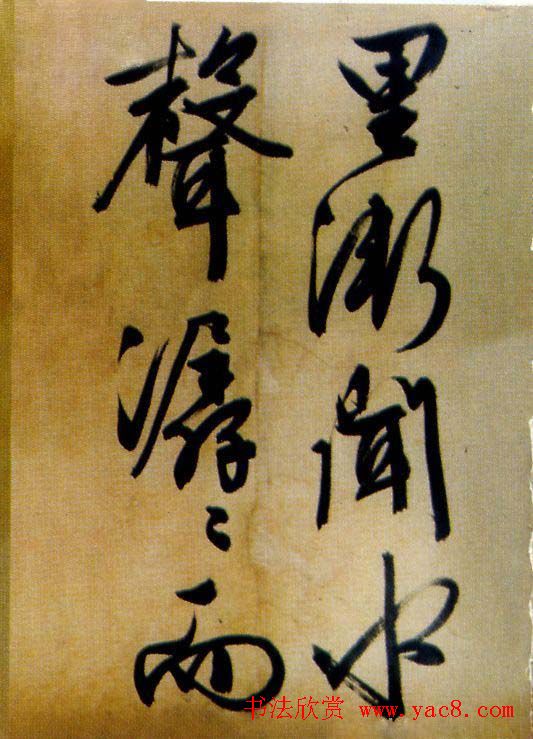 里漸聞水
聲潺〻而
书法欣赏 www.yac8.com